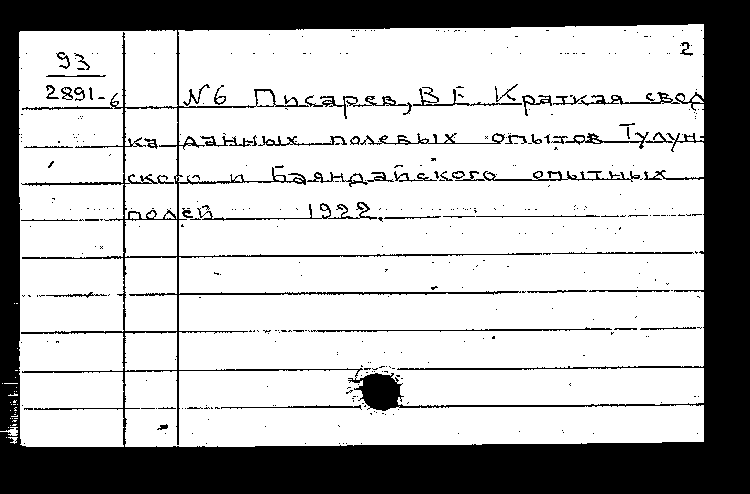 2
93
2891-6
№6 Писарев, В.Е. Краткая свод
ка данных полевых опытов Тулун-
ского и Баяндайского опытных
полей 1922.